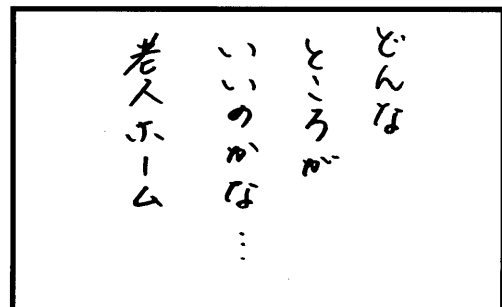 どんな
ところが
いいのかな…
老人ホーム